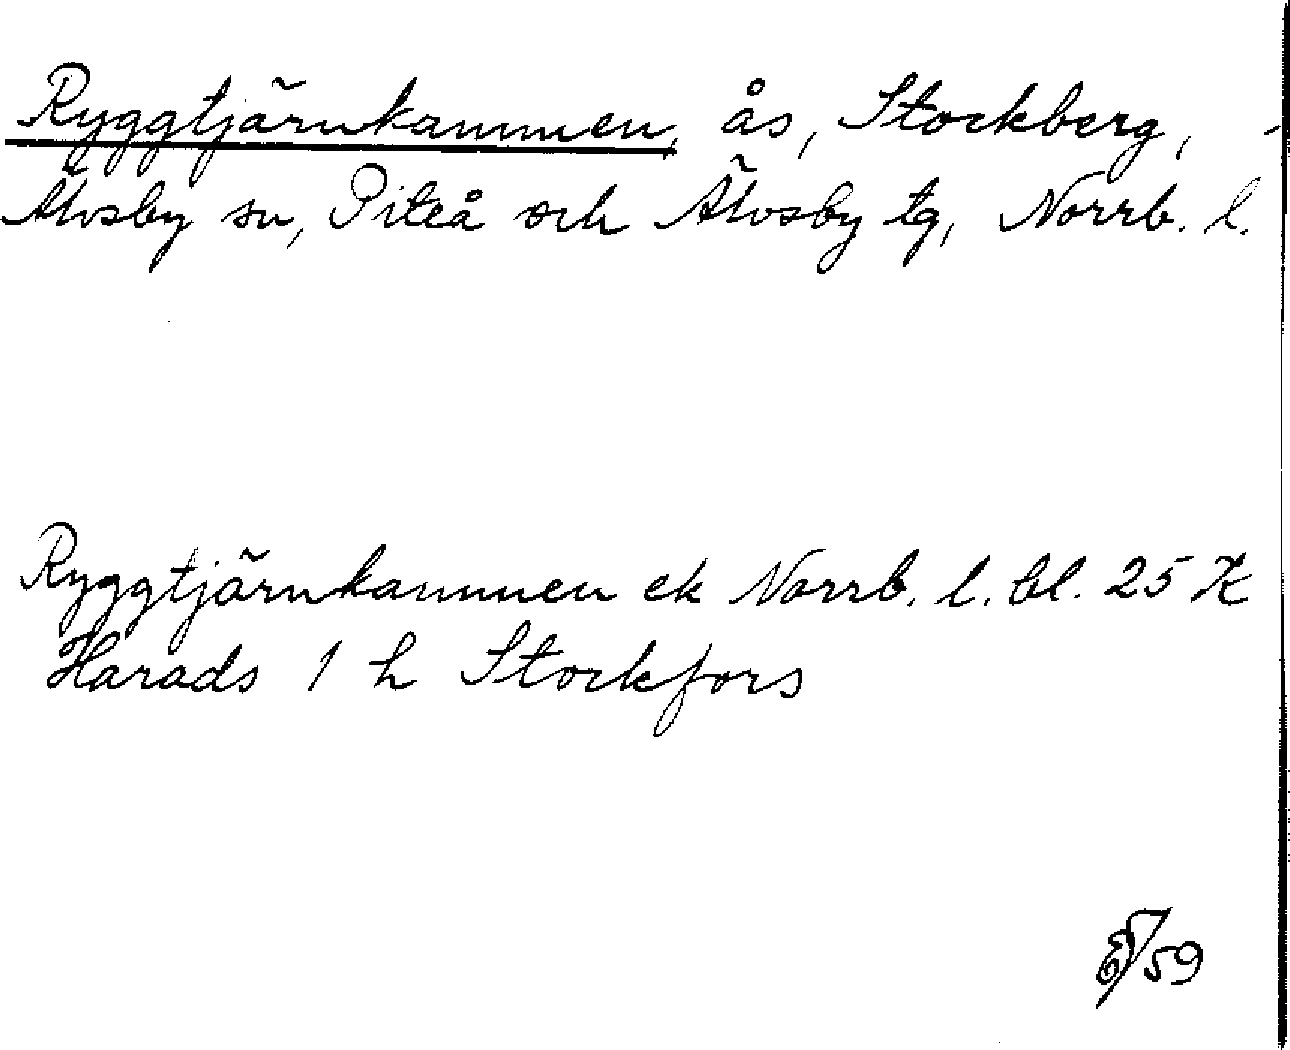 Ryggtjärnkammen, ås, Stockberg,
Älvsby sn, Piteå och Älvsby tg, Norrb. l.
Ryggtjärnkammen ek Norrb. l. bl. 25 K
Harads 1 h Stockfors
59